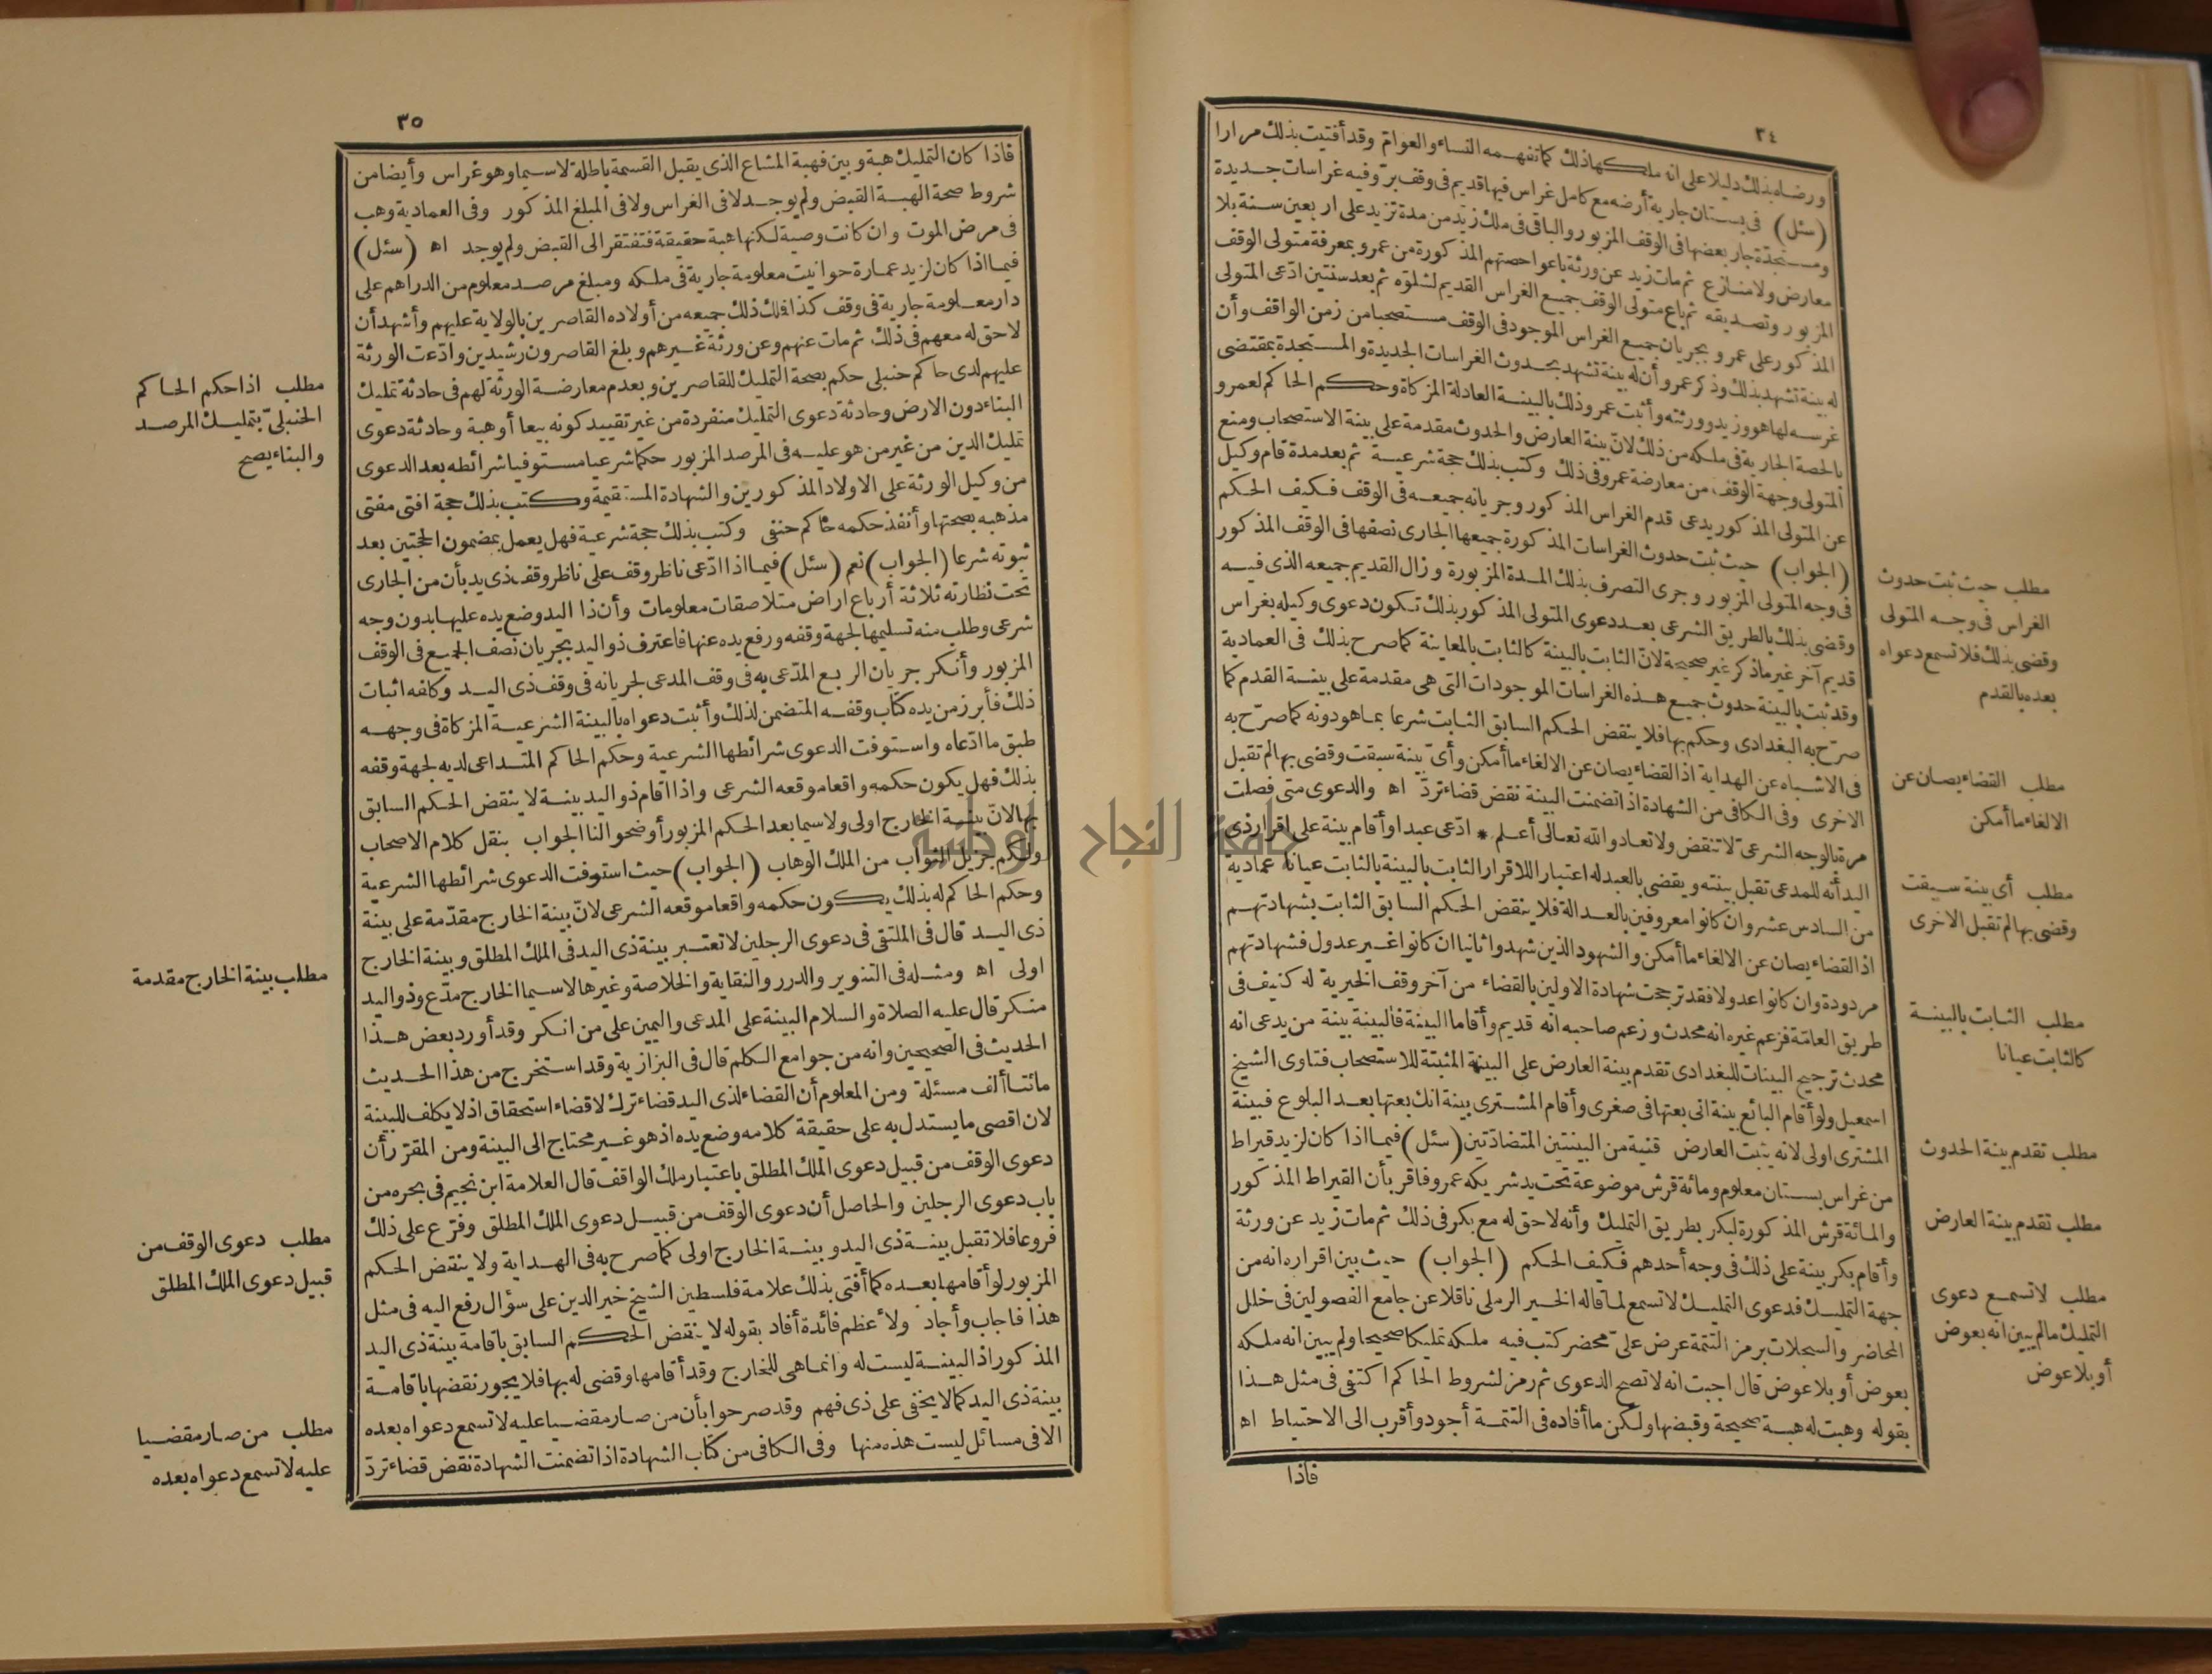 ٣٤
ورضاه بذلك دليلا على انه ملكها ذلك كما تفهمه النساء والعوام وقد أفتيت بذلك مرارا
(سئل) فى بستان جارية أرضه مع كامل غراس فيها قديم فى وقف بر وفيه غراسات جديدة
ومستجدة جار بعضها فى الوقف المزبور والباقى فى ملك زيد من مدة تزيد على اربعين سنة بلا
معارض ولا منازع ثم مات زيد عن ورثة باعوا حصتهم المذكورة من عمرو بمعرفة متولى الوقف
المزبور وتصديقه ثم باع متولى الوقف جميع الغراس القديم لشلوّه ثم بعد سنتين ادّعى المتولى
المذكور على عمرو بجريان جميع الغراس الموجود فى الوقف مستصحبا من زمن الواقف وأن
له بينة تشهد بذلك وذكر عمرو أن له بينة تشهد بحدوث الغراسات الجديدة والمستجدة بمقتضى
غرسه لها هو وزيد وورثته وأثبت عمرو ذلك بالبينة العادلة المزكاة وحكم الحاكم لعمرو
بالحصة الجارية فى ملكه من ذلك لانّ بينة العارض والحدوث مقدمة على بينة الاستصحاب ومنع
المتولى وجهة الوقف من معارضة عمرو فى ذلك وكتب بذلك حجة شرعية ثم بعد مدة قام وكيل
عن المتولى المذكور يدعى قدم الغراس المذكور وجريانه جميعه فى الوقف فكيف الحكم
(الجواب) حيث ثبت حدوث الغراسات المذكورة جميعها الجارى نصفها فى الوقف المذكور
فى وجه المتولى المزبور وجرى التصرف بذلك المدة المزبورة وزال القديم جميعه الذى فيه
وقضى بذلك بالطريق الشرعى بعد دعوى المتولى المذكور بذلك تكون دعوى وكيله بغراس
قديم آخر غير ماذكر غير صحيحة لانّ الثابت بالبينة كالثابت بالمعاينة كما صرح بذلك فى العمادية
وقد ثبت بالبينة حدوث جميع هذه الغراسات الموجودات التى هى مقدمة على بينة القدم كما
صرّح به البغدادى وحكم بها فلا ينقض الحكم السابق الثابت شرعا بما هو دونه كما صرّح به
فى الاشباه عن الهداية اذ القضاء يصان عن الالغاء ما أمكن وأىّ بينة سبقت وقضى بها لم تقبل
الاخرى وفى الكافى من الشهادة اذا تضمنت البينة نقض قضاء تردّ اه والدعوى متى فصلت
مرة بالوجه الشرعىّ لا تنقض ولا تعاد والله تعالى أعلم * ادّعى عبدا وأقام بينة على اقرار ذى
اليد أنه للمدعى تقبل بينته ويقضى بالعبد له اعتبار اللاقرار الثابت بالبينة بالثابت عيانا عمادية
من السادس عشر وان كانوا معروفين بالعدالة فلا ينقض الحكم السابق الثابت بشهادتهم
اذ القضاء يصان عن الالغاء ما أمكن والشهود الذين شهدوا ثانيا ان كانوا غير عدول فشهادتهم
مردودة وان كانوا عدولا فقد ترجحت شهادة الاولين بالقضاء من آخر وقف الخيرية له كنيف فى
طريق العامّة فزعم غيره انه محدث وزعم صاحبه انه قديم وأقاما البينة فالبينة بينة من يدعى انه
محدث ترجيح البينات للبغدادى تقدم بينة العارض على البينة المثبتة للاستصحاب فتاوى الشيخ
اسمعيل ولو أقام البائع بينة انى بعتها فى صغرى وأقام المشترى بينة انك بعتها بعد البلوغ فبينة
المشترى اولى لانه يثبت العارض قنية من البينتين المتضادّتين (سئل) فيما اذا كان لزيد قيراط
من غراس بستان معلوم ومائة قرش موضوعة تحت يد شريكه عمرو فاقر بأن القيراط المذكور
والمائة قرش المذكورة لبكر بطريق التمليك وأنه لا حق له مع بكر فى ذلك ثم مات زيد عن ورثة
وأقام بكر بينة على ذلك فى وجه أحدهم فكيف الحكم (الجواب) حيث بين اقراره انه من
جهة التمليك فدعوى التمليك لا تسمع لما قاله الخير الرملى ناقلا عن جامع الفصولين فى خلل
المحاضر والسجلات برمز التتمة عرض علىّ محضر كتب فيه ملكه تمليكا صحيحا ولم يبين انه ملكه
بعوض أو بلا عوض قال اجبت انه لا تصح الدعوى ثم رمز لشروط الحاكم اكتفى فى مثل هذا
بقوله وهبت له هبة صحيحة وقبضها ولكن ما أفاده فى التتمة أجود وأقرب الى الاحتياط اه
فاذا
مطلب حيث ثبت حدوث
الغراس فى وجه المتولى
وقضى بذلك فلا تسمع دعواه
بعده بالقدم
مطلب القضاء يصان عن
الالغاء ما أمكن
مطلب أى بينة سبقت
وقضى بها لم تقبل الاخرى
مطلب الثابت بالبينة
كالثابت عيانا
مطلب تقدم بينة الحدوث
مطلب تقدم بينة العارض
مطلب لا تسمع دعوى
التمليك ما لم يبين انه بعوض
أو بلا عوض
٣٥
فاذا كان التمليك هبة وبين فهبة المشاع الذى يقبل القسمة باطلة لا سيما وهو غراس وأيضا من
شروط صحة الهبة القبض ولم يوجد لا فى الغراس ولا فى المبلغ المذكور وفى العمادية وهب
فى مرض الموت وان كانت وصية لكنها هبة حقيقة فتفتقر الى القبض ولم يوجد اه (سئل)
فيما اذا كان لزيد عمارة حوانيت معلومة جارية فى ملكه ومبلغ مرصد معلوم من الدراهم على
دار معلومة جارية فى وقف كذا فملك ذلك جميعه من أولاده القاصرين بالولاية عليهم وأشهد أن
لا حق له معهم فى ذلك ثم مات عنهم وعن ورثة غيرهم وبلغ القاصرون رشيدين وادّعت الورثة
عليهم لدى حاكم حنبلى حكم بصحة التمليك للقاصرين وبعدم معارضة الورثة لهم فى حادثة تمليك
البناء دون الارض وحادثة دعوى التمليك منفردة من غير تقييد كونه بيعا أو هبة وحادثة دعوى
تمليك الدين من غير من هو عليه فى المرصد المزبور حكما شرعيا مستوفيا شرائطه بعد الدعوى
من وكيل الورثة على الاولاد المذكورين والشهادة المستقيمة وكتب بذلك حجة افتى مفتى
مذهبه بصحتها وأنفذ حكمه حاكم حنفى وكتب بذلك حجة شرعية فهل يعمل بمضمون الحجتين بعد
ثبوته شرعا (الجواب) نعم (سئل) فيما اذا ادّعى ناظر وقف على ناظر وقف ذى يد بأن من الجارى
تحت نظارته ثلاثة أرباع اراض متلاصقات معلومات وأن ذا اليد وضع يده عليها بدون وجه
شرعى وطلب منه تسليمها لجهة وقفه ورفع يده عنها فاعترف ذو اليد بجريان نصف الجميع فى الوقف
المزبور وأنكر جريان الربع المدّعى به فى وقف المدعى لجريانه فى وقف ذى اليد وكلفه اثبات
ذلك فأبرز من يده كتاب وقفه المتضمن لذلك وأثبت دعواه بالبينة الشرعية المزكاة فى وجهه
طبق ما ادّعاه واستوفت الدعوى شرائطها الشرعية وحكم الحاكم المتداعى لديه لجهة وقفه
بذلك فهل يكون حكمه واقعا موقعه الشرعى واذا اقام ذو اليد بينة لا ينقض الحكم السابق
بها لانّ بينة الخارج اولى ولا سيما بعد الحكم المزبور أوضحوا لنا الجواب بنقل كلام الاصحاب
ولكم جزيل الثواب من الملك الوهاب (الجواب) حيث استوفت الدعوى شرائطها الشرعية
وحكم الحاكم له بذلك يكون حكمه واقعا موقعه الشرعى لانّ بينة الخارج مقدّمة على بينة
ذى اليد قال فى الملتقى فى دعوى الرجلين لا تعتبر بينة ذى اليد فى الملك المطلق وبينة الخارج
اولى اه ومثله فى التنوير والدرر والنقاية والخلاصة وغيرها لا سيما الخارج مدّع وذو اليد
منكر قال عليه الصلاة والسلام البينة على المدعى واليمين على من انكر وقد أورد بعض هذا
الحديث فى الصحيحين وانه من جوامع الكلم قال فى البزازية وقد استخرج من هذا الحديث
مائتا ألف مسئلة ومن المعلوم أن القضاء لذى اليد قضاء ترك لا قضاء استحقاق اذ لا يكلف للبينة
لان اقصى ما يستدل به على حقيقة كلامه وضع يده اذ هو غير محتاج الى البينة ومن المقرّر أن
دعوى الوقف من قبيل دعوى الملك المطلق باعتبار ملك الواقف قال العلامة ابن نجيم فى بحره من
باب دعوى الرجلين والحاصل أن دعوى الوقف من قبيل دعوى الملك المطلق وفرّع على ذلك
فروعا فلا تقبل بينة ذى اليد وبينة الخارج اولى كما صرح به فى الهداية ولا ينتقض الحكم
المزبور لو أقامها بعده كما أفتى بذلك علامة فلسطين الشيخ خير الدين على سؤال رفع اليه فى مثل
هذا فاجاب وأجاد ولأ عظم فائدة أفاد بقوله لا ينقض الحكم السابق باقامة بينة ذى اليد
المذكور اذ البينة ليست له وانما هى للخارج وقد أقامها وقضى له بها فلا يجوز نقضها باقامة
بينة ذى اليد كما لا يخفى على ذى فهم وقد صرحوا بأن من صار مقضيا عليه لا تسمع دعواه بعده
الا فى مسائل ليست هذه منها وفى الكافى من كتاب الشهادة اذا تضمنت الشهادة نقض قضاء تردّ
مطلب اذا حكم الحاكم
الحنبلىّ بتمليك المرصد
والبناء يصح
مطلب بينة الخارج مقدمة
مطلب دعوى الوقف من
قبيل دعوى الملك المطلق
مطلب من صار مقضيا
عليه لا تسمع دعواه بعده
جامعة النجاح الوطنية